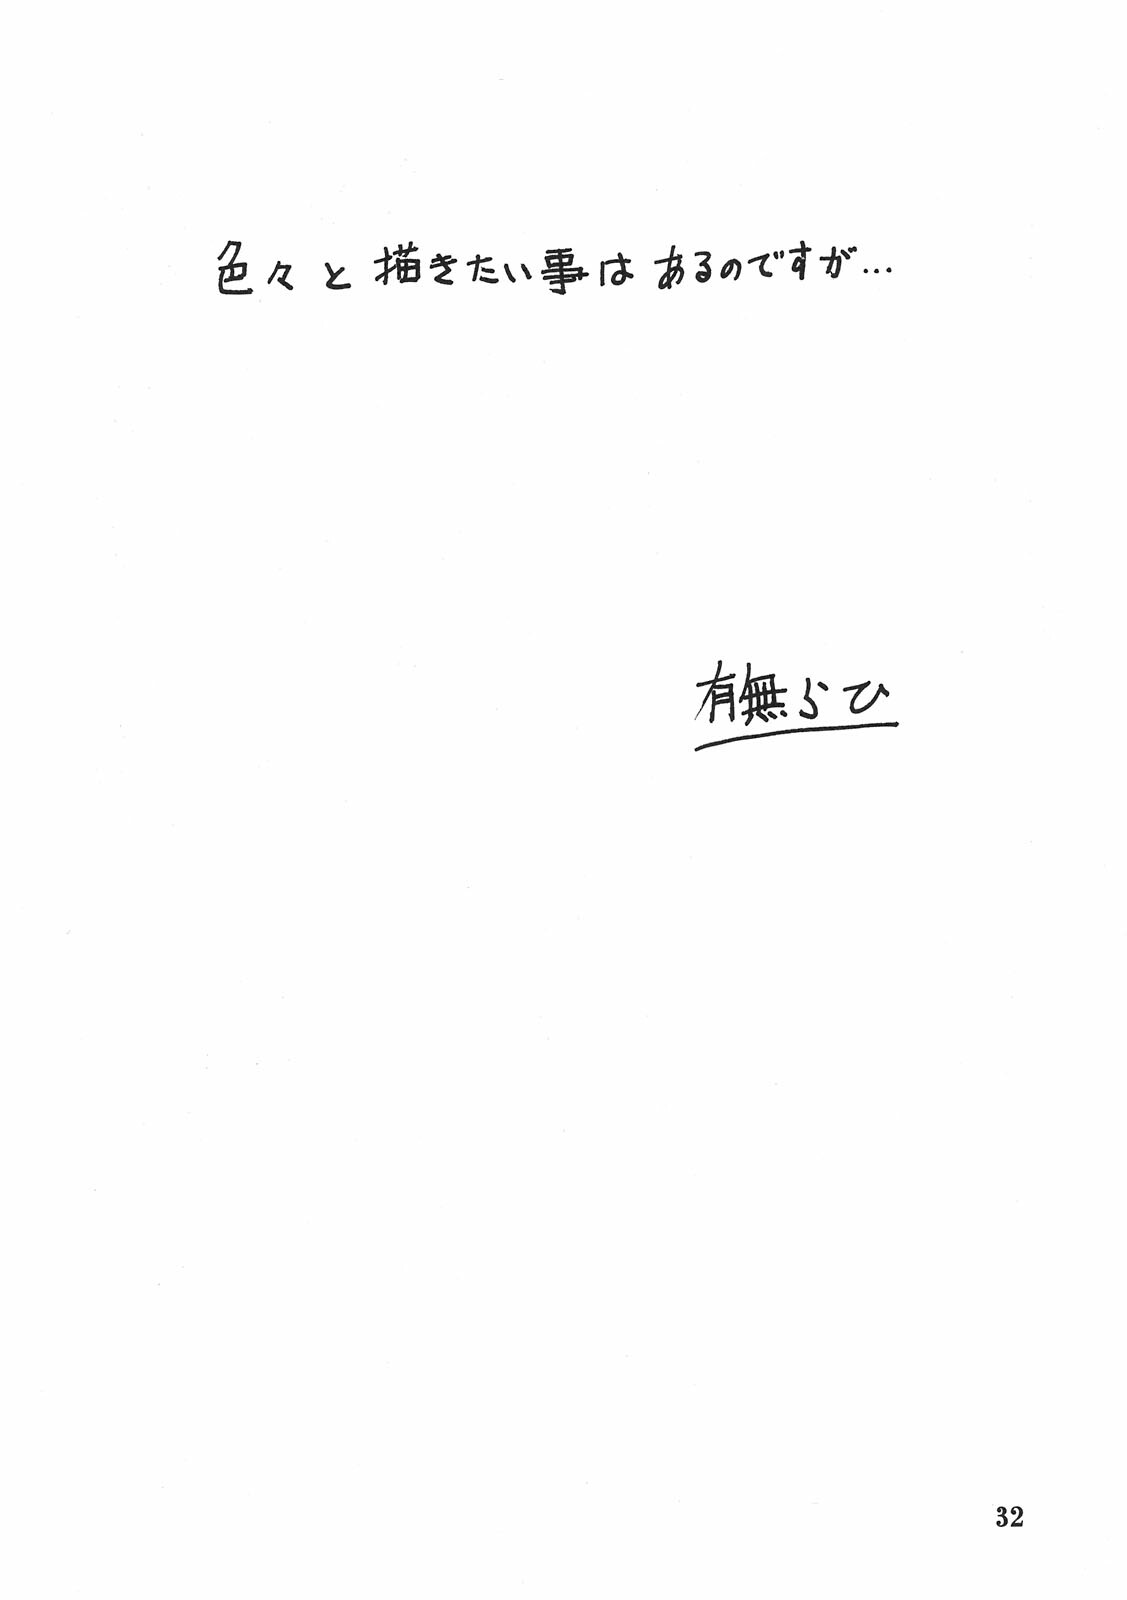 色々と描きたい事はあるのですが…
有無らひ
32